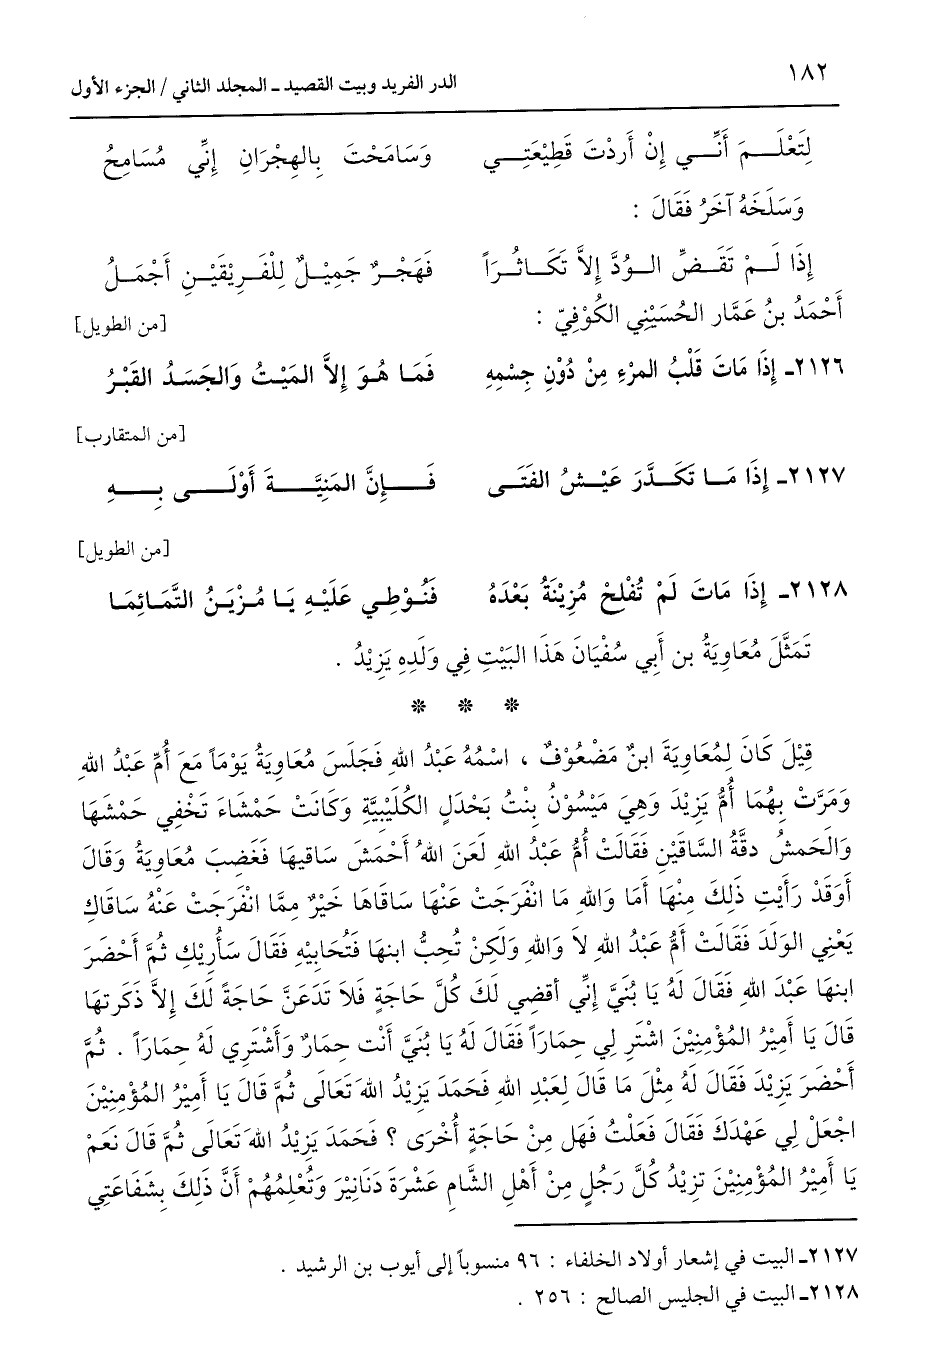 ١٨٢
الدر الفريد وبيت القصيد ـ المجلد الثاني / الجزء الأول
لِتَعْلَمَ أَنِّي إِنْ أَرَدْتَ قَطِيْعَتِي وَسَامَحْتَ بِالهِجْرَانِ إِنِّي مُسَامِحُ
وَسَلَخَهُ آخَرُ فَقَالَ :
إِذَا لَمْ تَقَضِّ الوُدَّ إِلاَّ تَكَاثُرَاً فَهَجْرٌ جَمِيْلٌ لِلْفَرِيْقَيْنِ أَجْمَلُ
أَحْمَدُ بنُ عَمَّار الحُسَيْنِي الكُوْفِيّ :
[من الطويل]
٢١٢٦ـ إِذَا مَاتَ قَلْبُ المرْءِ مِنْ دُوْنِ جِسْمِهِ فَمَا هُوَ إِلاَّ المَيْتُ وَالجَسَدُ القَبْرُ
[من المتقارب]
٢١٢٧ـ إِذَا مَا تَكَدَّرَ عَيْشُ الفَتَى فَإِنَّ المَنِيَّةَ أَوْلَى بِهِ
[من الطويل]
٢١٢٨ـ إِذَا مَاتَ لَمْ تُفْلِحْ مُزِيْنَةُ بَعْدَهُ فَنُوْطِي عَلَيْهِ يَا مُزْيَنُ التَّمَائِمَا
تَمَثَّلَ مُعَاوِيَةُ بن أَبي سُفْيَانَ هَذَا البَيْتِ فِي وَلَدِهِ يَزِيْدُ .
* * *
قِيْلَ كَانَ لِمُعَاوِيَةَ ابنٌ مَضْعُوْفٌ ، اسْمُهُ عَبْدُ اللهِ فَجَلَسَ مُعَاوِيَةُ يَوْمَاً مَعَ أُمِّ عَبْدُ اللهِ
وَمَرَّتْ بِهُمَا أُمُّ يَزِيْدَ وَهِيَ مَيْسُوْنُ بِنْتُ بَحْدَلٍ الكُلَيْبِيَّةِ وَكَانَتْ حَمْشَاءَ تَخْفِي حَمْشَهَا
وَالحَمشُ دقَّةُ السَّاقَيْنِ فَقَالَتْ أُمُّ عَبْدُ اللهِ لَعَنَ اللهُ أَحْمَشَ ساقيها فَغَضِبَ مُعَاوِيَةُ وَقَالَ
أَوَقَدْ رَأَيْتِ ذَلِكَ مِنْهَا أَمَا وَاللهِ مَا انْفَرَجَتْ عَنْهَا سَاقَاهَا خَيْرٌ مِمَّا انْفَرَجَتْ عَنْهُ سَاقَاكِ
يَعْنِي الوَلَدَ فَقَالَتْ أُمُّ عَبْدُ اللهِ لاَ وَاللهِ وَلَكِنْ تُحِبُّ ابنها فَتُحَابِيْهِ فَقَالَ سَأُرِيْكِ ثُمَّ أَحْضَرَ
ابنهَا عَبْدَ اللهِ فَقَالَ لَهُ يَا بُنَيَّ إِنِّي أقضي لَكَ كُلَّ حَاجَةٍ فَلاَ تَدَعَنَّ حَاجَةً لَكَ إِلاَّ ذَكَرتهَا
قَالَ يَا أَمِيْرُ المُؤْمِنِيْنَ اشْتَرِ لِي حِمَارَاً فَقَالَ لَهُ يَا بُنَيَّ أَنْت حِمَارٌ وَأَشْتَرِي لَهُ حِمَارَاً . ثُمَّ
أَحْضَرَ يَزِيْدَ فَقَالَ لَهُ مِثْلَ مَا قَالَ لِعَبْدِ اللهِ فَحَمَدَ يَزِيْدُ اللهَ تَعَالَى ثُمَّ قَالَ يَا أَمِيْرُ المُؤْمِنِيْنَ
اجْعَلْ لِي عَهْدَكَ فَقَالَ فَعَلْتُ فَهَل مِنْ حَاجَةٍ أُخْرَى ؟ فَحَمَدَ يَزِيْدُ اللهَ تَعَالَى ثُمَّ قَالَ نَعَمْ
يَا أَمِيْرُ المُؤْمِنِيْنَ تزِيْدُ كُلَّ رَجُلٍ مِنْ أَهْلِ الشَّامِ عَشْرَةَ دَنَانِيْرَ وَتُعْلِمُهُمْ أَنَّ ذَلِكَ بِشَفَاعَتِي
٢١٢٧ـ البيت في إشعار أولاد الخلفاء : ٩٦ منسوباً إلى أيوب بن الرشيد .
٢١٢٨ـ البيت في الجليس الصالح : ٢٥٦ .